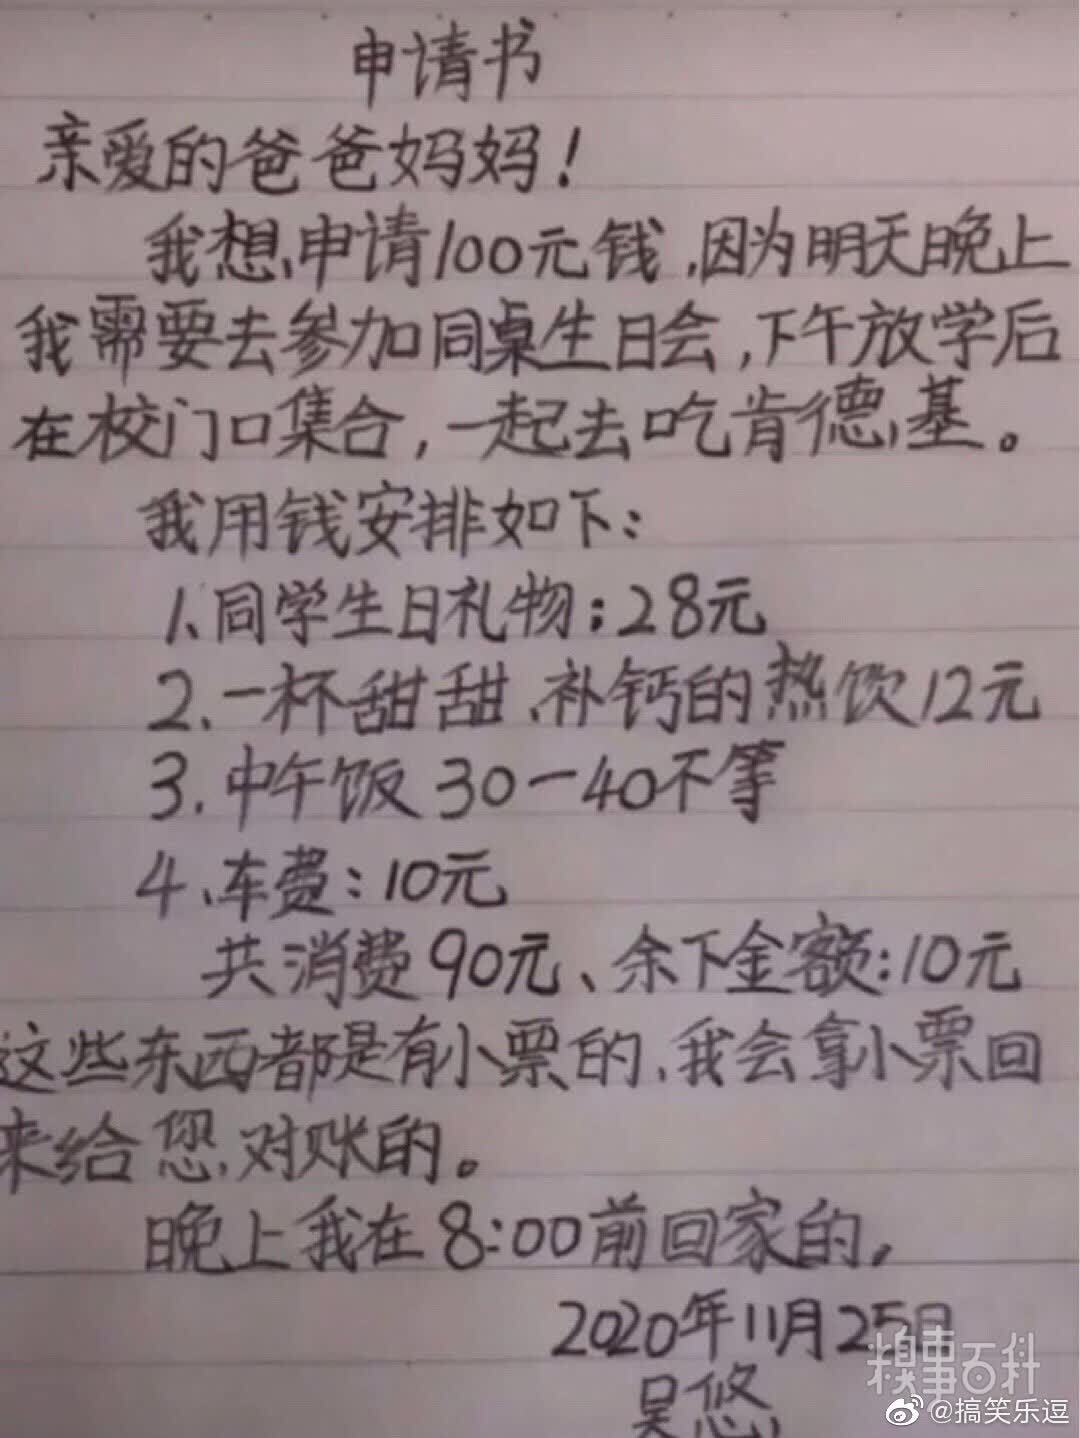 申请书
亲爱的爸爸妈妈！
我想申请100元钱，因为明天晚上
我需要去参加同桌生日会，下午放学后
在校门口集合，一起去吃肯德基。
我用钱安排如下：
1、同学生日礼物：28元
2、一杯甜甜、补钙的热饮12元
3、中午饭30一40不等
4、车费：10元
共消费90元、余下金额：10元
这些东西都是有小票的、我会拿小票回
来给您对账的。
晚上我在8:00前回家的，
2020年11月25日
吴悠
糗事百科
@搞笑乐逗